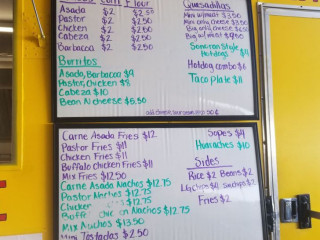 Corn Flour
Asada $2 $2.50
Pastor $2 $2.50
Chicken $2 $2.50
Cabeza $2 $2.50
Barbacoa $2 $2.50
Burritos
Asada, Barbacoa $9
Pastor, Chicken $8
Cabeza $10
Bean N cheese $6.50
Quesadillas
Mini w/meat $3.50
Mini only cheese $2.50
Big only cheese
Big w/meat
Sonoran Style
Hotdogs
Hotdog combo $6
Taco Plate $11
Carne Asada Fries $12
Pastor Fries $11
Chicken Fries $11
Buffalo Chicken Fries $11
Mix Fries $12.50
Carne Asada Nachos $12.75
Pastor Nachos $12.75
Chicken $12.75
Nachos $12.75
Mix Nachos $13.50
Mini Tostadas $2.50
Sopes $4
Huaraches $10
Sides
Rice $2 Beans $2
Fries $2